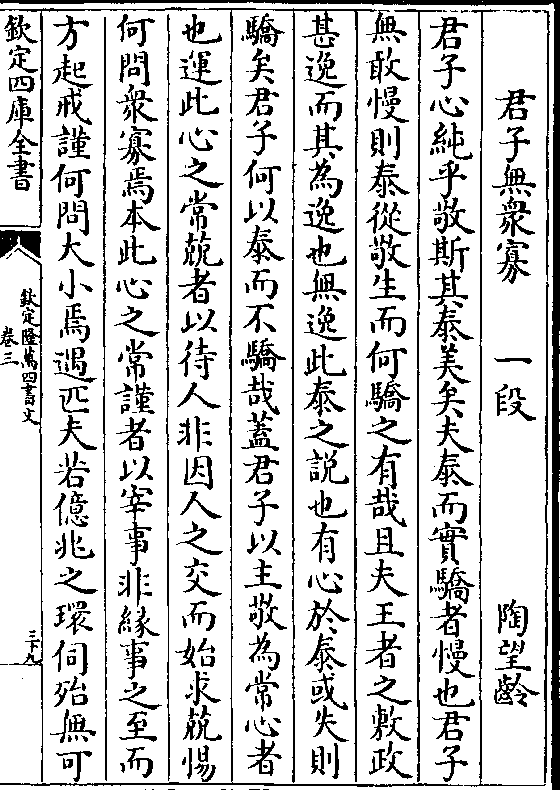 君子無衆寡　一段　陶望齡
君子心純乎敬斯其泰美矣夫泰而實驕者慢也君子
無敢慢則泰從敬生而何驕之有哉且夫王者之敷政
甚逸而其為逸也無逸此泰之説也有心於泰或失則
驕矣君子何以泰而不驕哉蓋君子以主敬為常心者
也運此心之常兢者以待人非因人之交而始求兢惕
何問衆寡焉本此心之常謹者以宰事非緣事之至而
方起戒謹何問大小焉遇匹夫若億兆之環伺殆無可
欽定四庫全書
欽定隆萬四書文
卷三
三十九